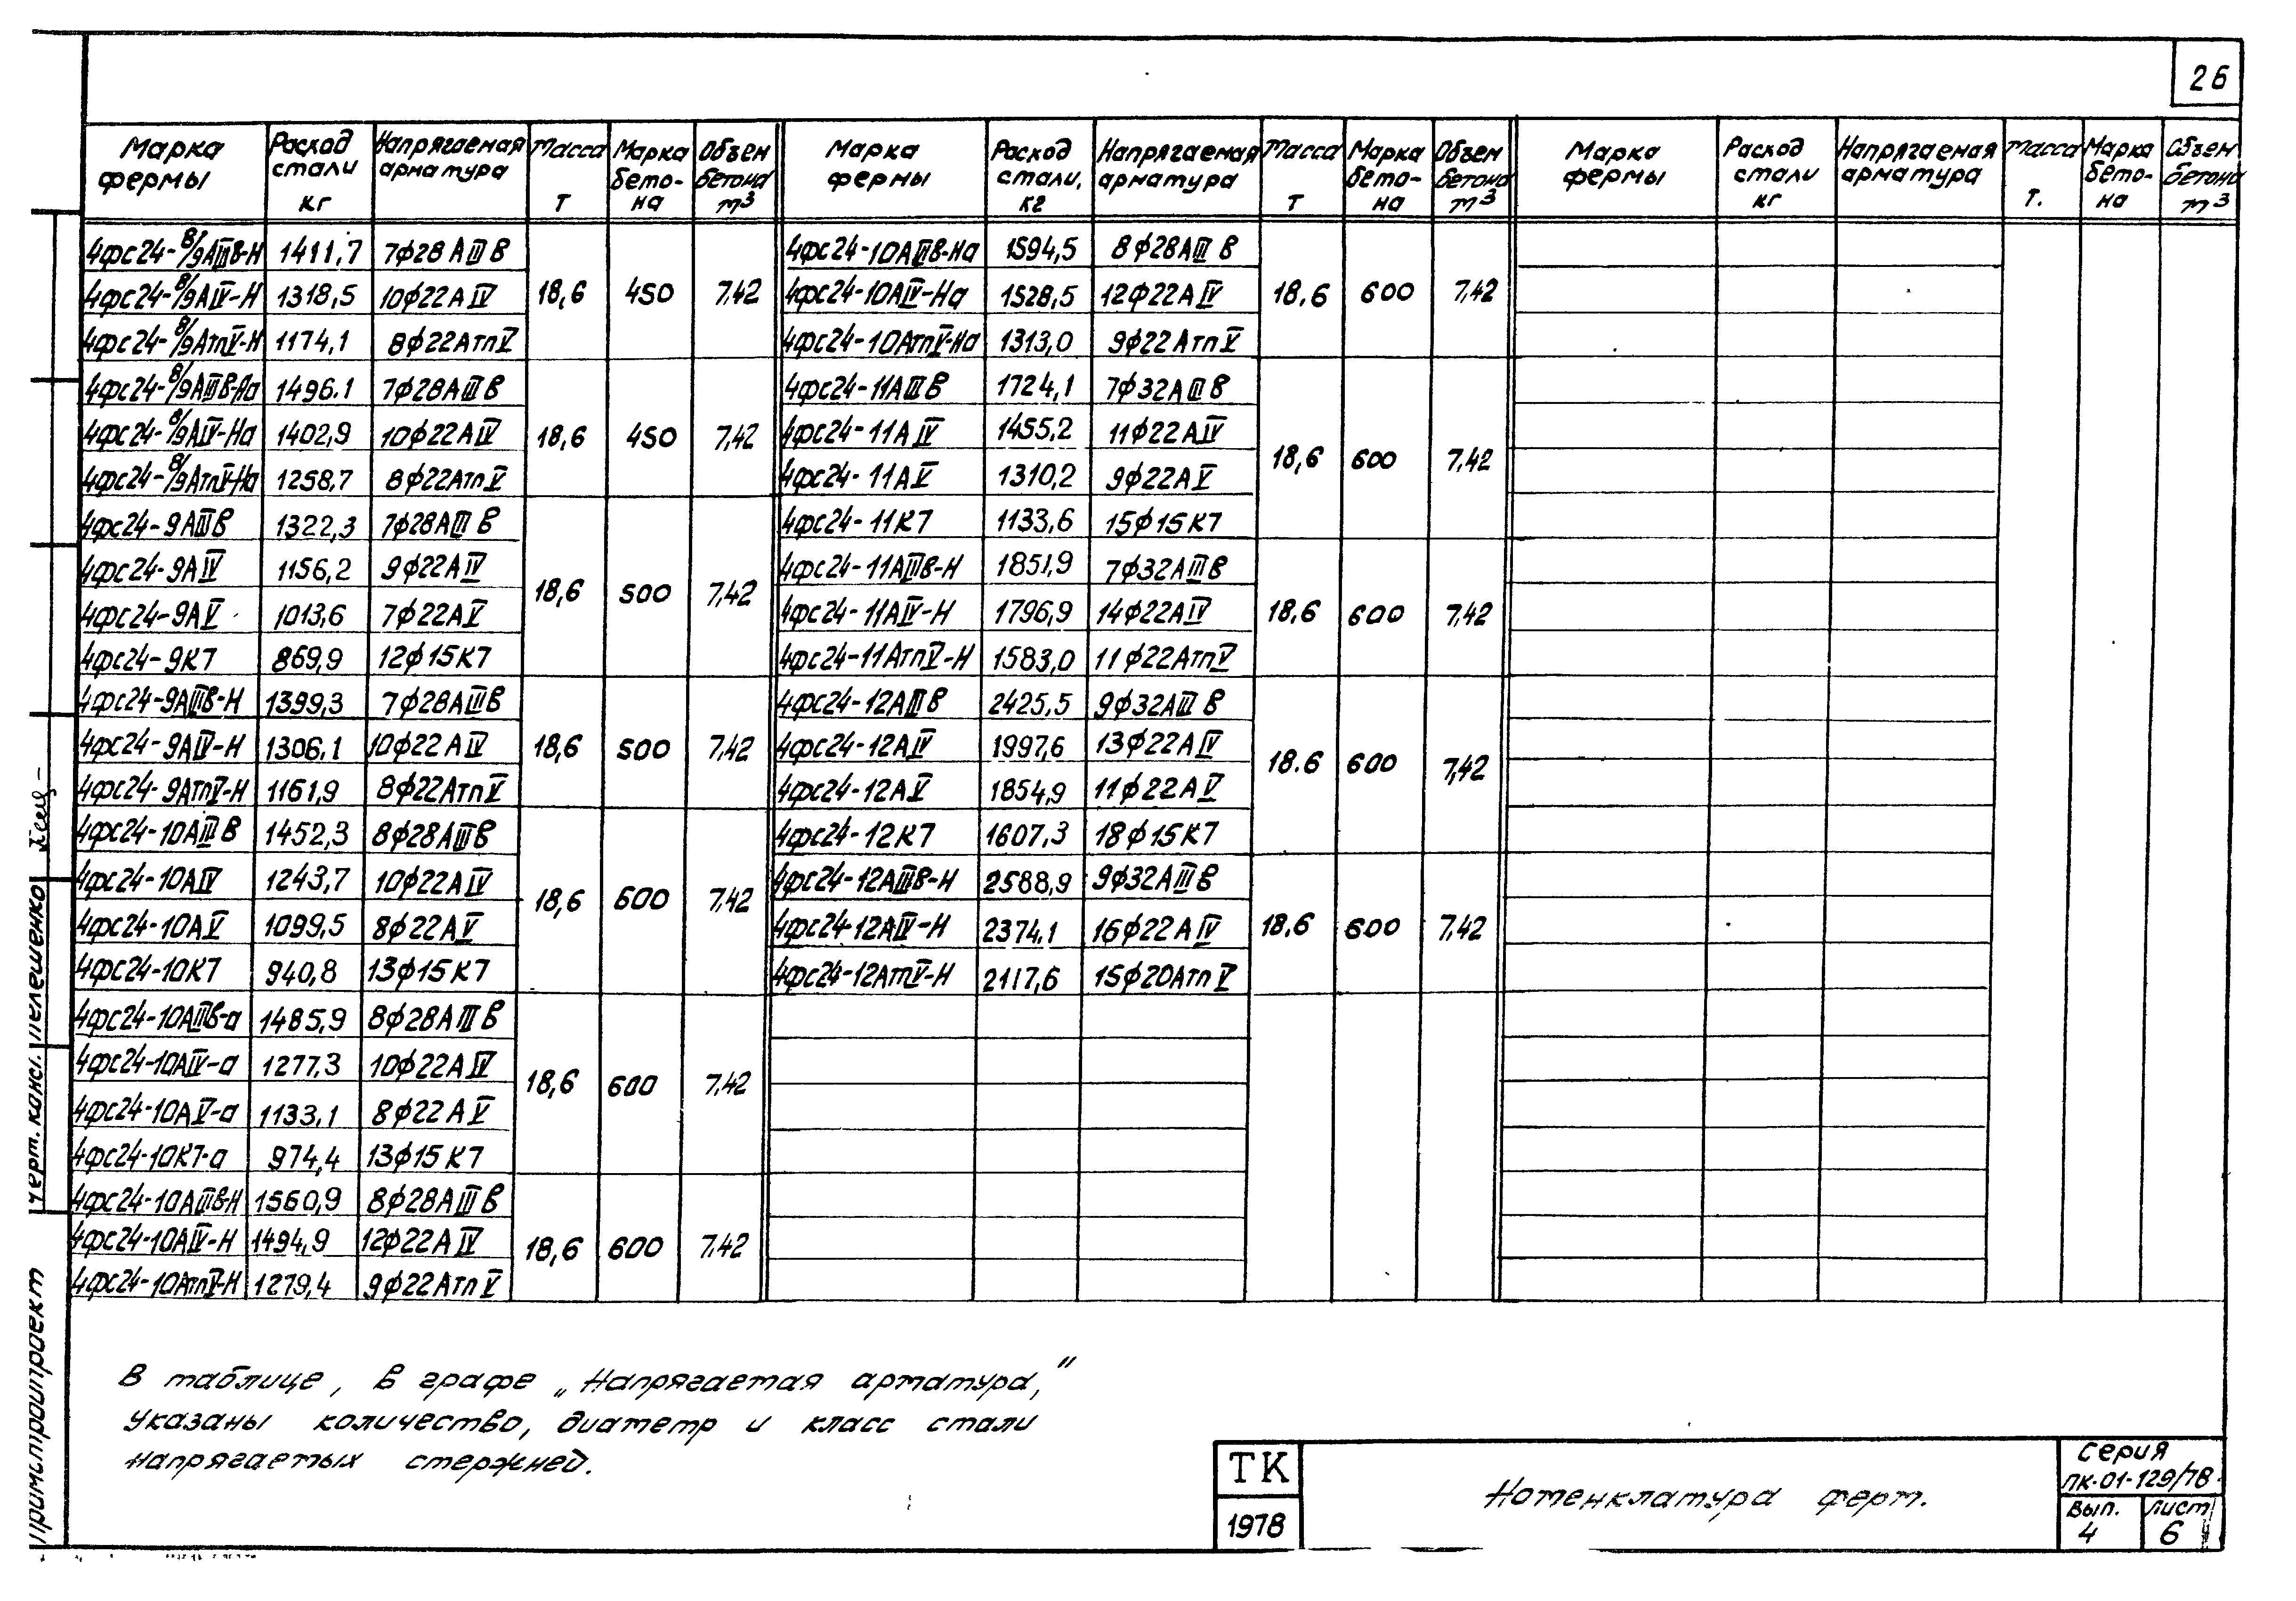 26
Марка фермы | Расход стали кг | Напрягаемая арматура | Масса т | Марка бето-на | Объем бетона м³ | Марка фермы | Расход стали, кг | Напрягаемая арматура | Масса т | Марка бето-на | Объем бетона м³ | Марка фермы | Расход стали кг | Напрягаемая арматура | Масса т. | Марка бето-на | Объем бетона м³
4фс24-8/9АIIIв-Н 1411,7 7ф28АIIIв
4фс24-8/9АIV-Н 1318,5 10ф22АIV 18,6 450 7,42
4фс24-8/9АтпV-Н 1174,1 8ф22АтпV
4фс24-8/9АIIIв-На 1496.1 7ф28АIIIв
4фс24-8/9АIV-На 1402,9 10ф22АIV 18,6 450 7,42
4фс24-8/9АтпV-На 1258,7 8ф22АтпV
4фс24-9АIIIв 1322,3 7ф28АIIIв
4фс24-9АIV 1156,2 9ф22АIV 18,6 500 7,42
4фс24-9АV 1013,6 7ф22АV
4фс24-9К7 869,9 12ф15К7
4фс24-9АIIIв-Н 1399,3 7ф28АIIIв
4фс24-9АIV-Н 1306,1 10ф22АIV 18,6 500 7,42
4фс24-9АтпV-Н 1161,9 8ф22АтпV
4фс24-10АIIIв 1452,3 8ф28АIIIв
4фс24-10АIV 1243,7 10ф22АIV 18,6 600 7,42
4фс24-10АV 1099,5 8ф22АV
4фс24-10К7 940,8 13ф15К7
4фс24-10АIIIв-а 1485,9 8ф28АIIIв
4фс24-10АIV-а 1277,3 10ф22АIV 18,6 600 7,42
4фс24-10АV-а 1133,1 8ф22АV
4фс24-10К7-а 974,4 13ф15К7
4фс24-10АIIIв-Н 1560,9 8ф28АIIIв
4фс24-10АIV-Н 1494,9 12ф22АIV 18,6 600 7,42
4фс24-10АтпV-Н 1279,4 9ф22АтпV
4фс24-10АIIIв-На 1594,5 8ф28АIIIв
4фс24-10АIV-На 1528,5 12ф22АIV 18,6 600 7,42
4фс24-10АтпV-На 1313,0 9ф22АтпV
4фс24-11АIIIв 1724,1 7ф32АIIIв
4фс24-11АIV 1455,2 11ф22АIV 18,6 600 7,42
4фс24-11АV 1310,2 9ф22АV
4фс24-11К7 1133,6 15ф15К7
4фс24-11АIIIв-Н 1851,9 7ф32АIIIв
4фс24-11АIV-Н 1796,9 14ф22АIV 18,6 600 7,42
4фс24-11АтпV-Н 1583,0 11ф22АтпV
4фс24-12АIIIв 2425,5 9ф32АIIIв
4фс24-12АIV 1997,6 13ф22АIV 18.6 600 7,42
4фс24-12АV 1854,9 11ф22АV
4фс24-12К7 1607,3 18ф15К7
4фс24-12АIIIв-Н 2588,9 9ф32АIIIв
4фс24-12АIV-Н 2374,1 16ф22АIV 18,6 600 7,42
4фс24-12АтпV-Н 2117,6 15ф20АтпV
В таблице, в графе „Напрягаемая арматура,”
указаны количество, диаметр и класс стали
напрягаемых стержней.
ТК
1978
Номенклатура ферм.
Серия
ПК-01-129/78
Вып.
4
Лист
6
Черт. конст. Пелешенко